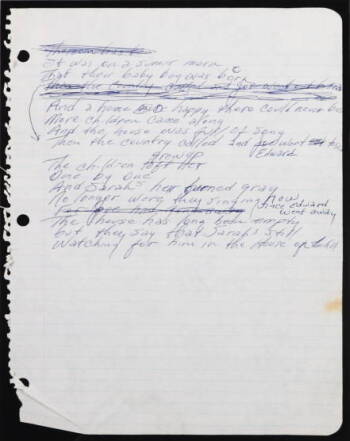 It was on a summer morn
That their baby boy was born
And a home so happy there could never be
More children came along
And the house was full of song
Then the country called and Edward went to
The children grown up left her
One by one
And Sarah's hair turned gray
No longer were they singing now
since Edward
went away
The house has long been empty
But they say that Sarah's still
Watching for him in the House up